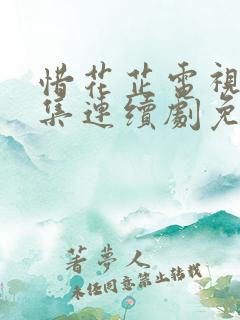 惜花芷電視
集連續劇免
著夢人
未經同意禁止轉載